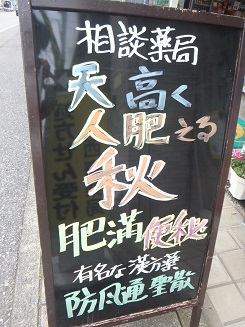 相談薬局
天高く
人肥える
秋
肥満便秘
有名な漢方薬
防风通聖散